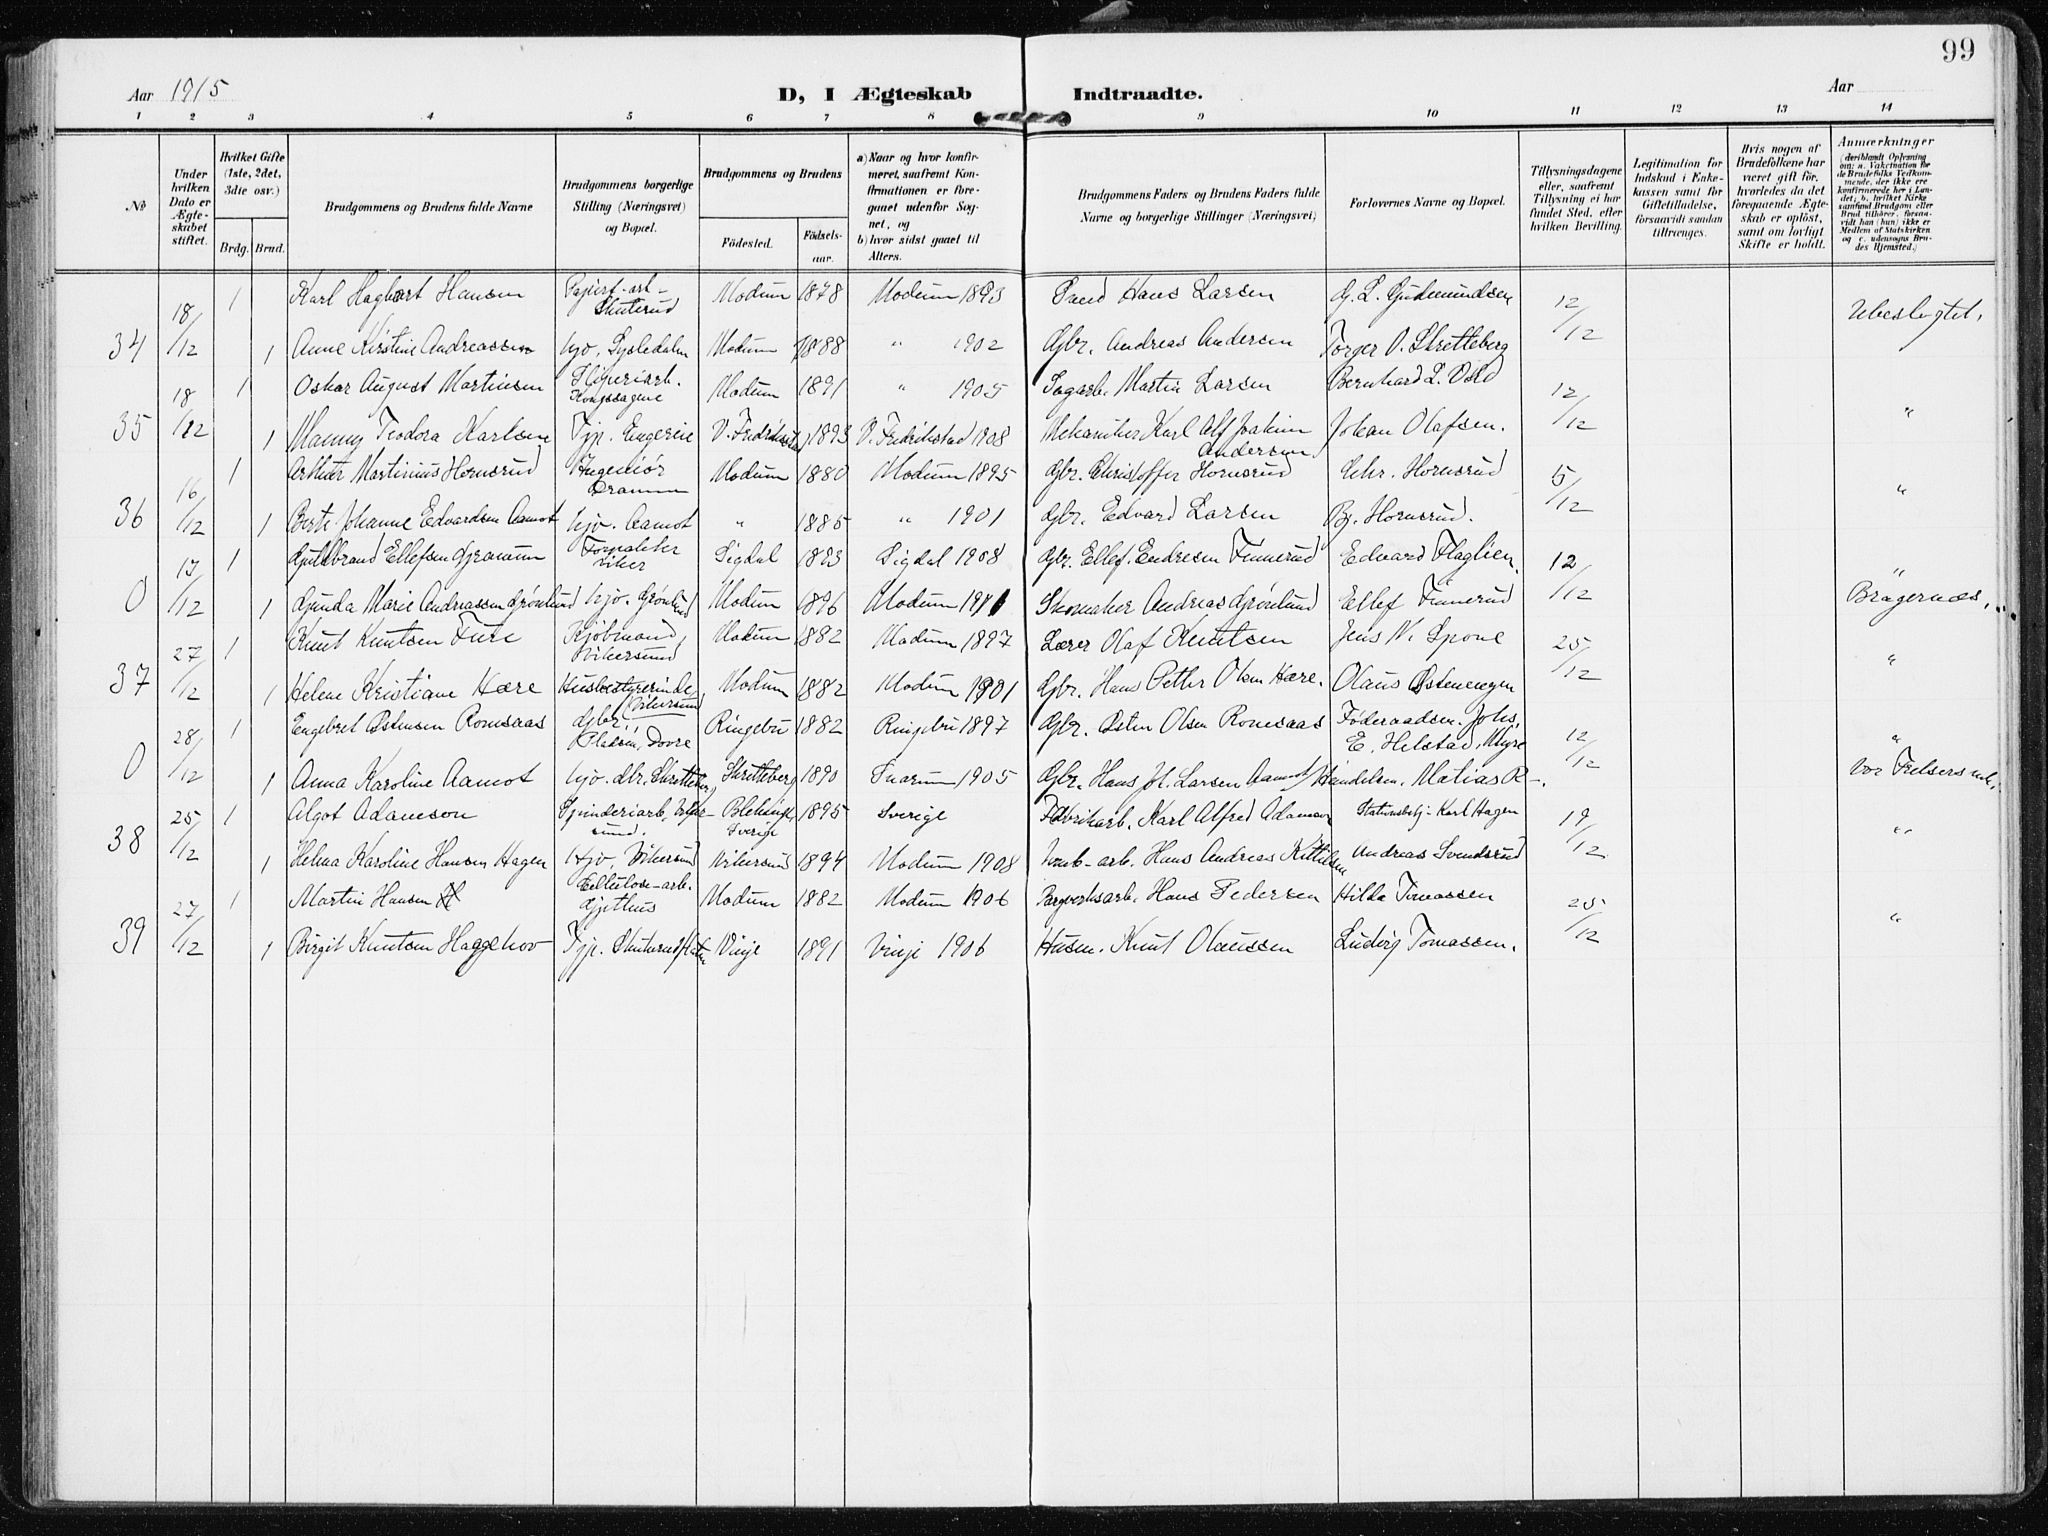 99
Aar 1915 D, I Ægteskab Indtraadte. Aar
1 2 3 4 5 6 7 8 9 10 11 12 13 14
No
Under hvilken Dato er Ægteskabet stiftet.
Hvilket Gifte (1ste, 2det, 3die osv.)
Brdg. Brud.
Brudgommens og Brudens fulde Navne
Brudgommens borgerlige Stilling (Næringsvei) og Bopæl.
Brudgommens og Brudens
Fødested. Fødsels-aar.
a) Naar og hvor konfirmeret, saafremt Konfirmationen er foregaaet udenfor Sognet, og
b) hvor sidst gaaet til Alters.
Brudgommens Faders og Brudens Faders fulde Navne og borgerlige Stillinger (Næringsvei)
Forlovernes Navne og Bopæl.
Tillysningsdagene eller, saafremt Tillysning ei har fundet Sted, efter hvilken Bevilling.
Legitimation for Indskud i Enkekassen samt for Giftetilladelse, forsaavidt saadan tiltrænges.
Hvis nogen af Brudefolkene har været gift før, hvorledes da det foregaaende Ægteskab er opløst, samt om lovligt Skifte er holdt.
Anmærkninger
(deriblandt Oplysning om: a. Vakcination for de Brudefolks Vedkommende, der ikke ere konfirmerede her i Landet; b. hvilket Kirkesamfund Brudgom eller Brud tilhører, forsaavidt han (hun) ikke er Medlem af Statskirken og c. udensogns Brudes Hjemsted.)
34 18/12 1 Karl Hagbart Hansen Skuterud Modum 1878 Modum 1893 Hans Larsen G. L. Gudmundsen 12/12 Ubeslegtet.
1 Anne Kirstine Andreassen hjo. Lysledalen Modum 1888 " 1902 Gbr. Andreas Andersen Torger O. Skretteberg
35 18/12 1 Oskar August Martinsen Kongssagene Modum 1891 " 1905 Sagarb. Martin Larsen Bernhard L. 12/12 "
1 Teodora Karlsen Tjp. Engerie V. Fredrikstad 1893 V. Fredrikstad 1908 Mekaniker Karl Alf Joakim Andersen Johan Olafsen.
36 16/12 1 Arthur Martinius Hornsrud Ingeniør Drammen Modum 1880 Modum 1895 Gbr. Christoffer Hornsrud Chr. Hornsrud 5/12 "
1 Berte Johanne Edvardsen Aamot hjo. Aamot " 1885 " 1901 Gbr. Edvard Larsen Bj. Hornsrud.
0 17/12 1 Gulbrand Ellefsen Gramum Viker Sigdal 1893 Sigdal 1908 Gbr. Ellef Endresen Finnerud Edvard Flaglien. 12/12 "
1 Gunda Marie Andreassen Grønlund hjo. Grønlund Modum 1896 Modum 1911 Skomaker Andreas Grønlund Ellef Finnerud Bragernæs.
37 27/12 1 Knut Knutsen Fure Kjøbmand, Vikersund Modum 1882 Modum 1897 Lærer Olaf Knutsen Jens N. Spone 25/12 "
1 Helene Kristiane Hære Husbestyrerinde, Vikersund Modum 1882 Modum 1901 Gbr. Hans Petter Olsen Hære. Olaus Østenengen
0 28/12 1 Engebret Østensen Romsaas Gbr. Dovre Ringebu 1882 Ringebu 1897 Gbr. Østen Olsen Romsaas Føderaadsm. Johs. E. Helstad, Myre 12/12 "
1 Anna Karoline Aamot hjo. Skretteberg 1890 Snarum 1905 Gbr. Hans Jh. Larsen Aamot Handelsm. Matias R-. Vor Frelsers
38 25/12 1 Algot Adamson Spinderiarb. Vikersund. Blekinge, Sverige 1895 Sverige Fabrikarb. Karl Alfred Adamson Stationsbetj. Karl Hagen 19/12 "
1 Helma Karoline Hansen Hagen Hjo. Vikersund Vikersund 1894 Modum 1908 Hans Andreas Kittilsen Andreas Svendsrud
39 27/12 1 Martin Hansen Cellulose-arb. Gjethus Modum 1882 Modum 1906 Bergverksarb. Hans Pedersen Hilda Tomassen 25/12 "
1 Birgit Knutsen Haggehov Tjp. Skuterud Vinje 1891 Vinje 1906 Husm. Knut Olaussen Ludvig Tomassen.